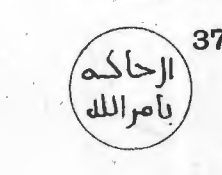 37
الحاكم
بأمر الله